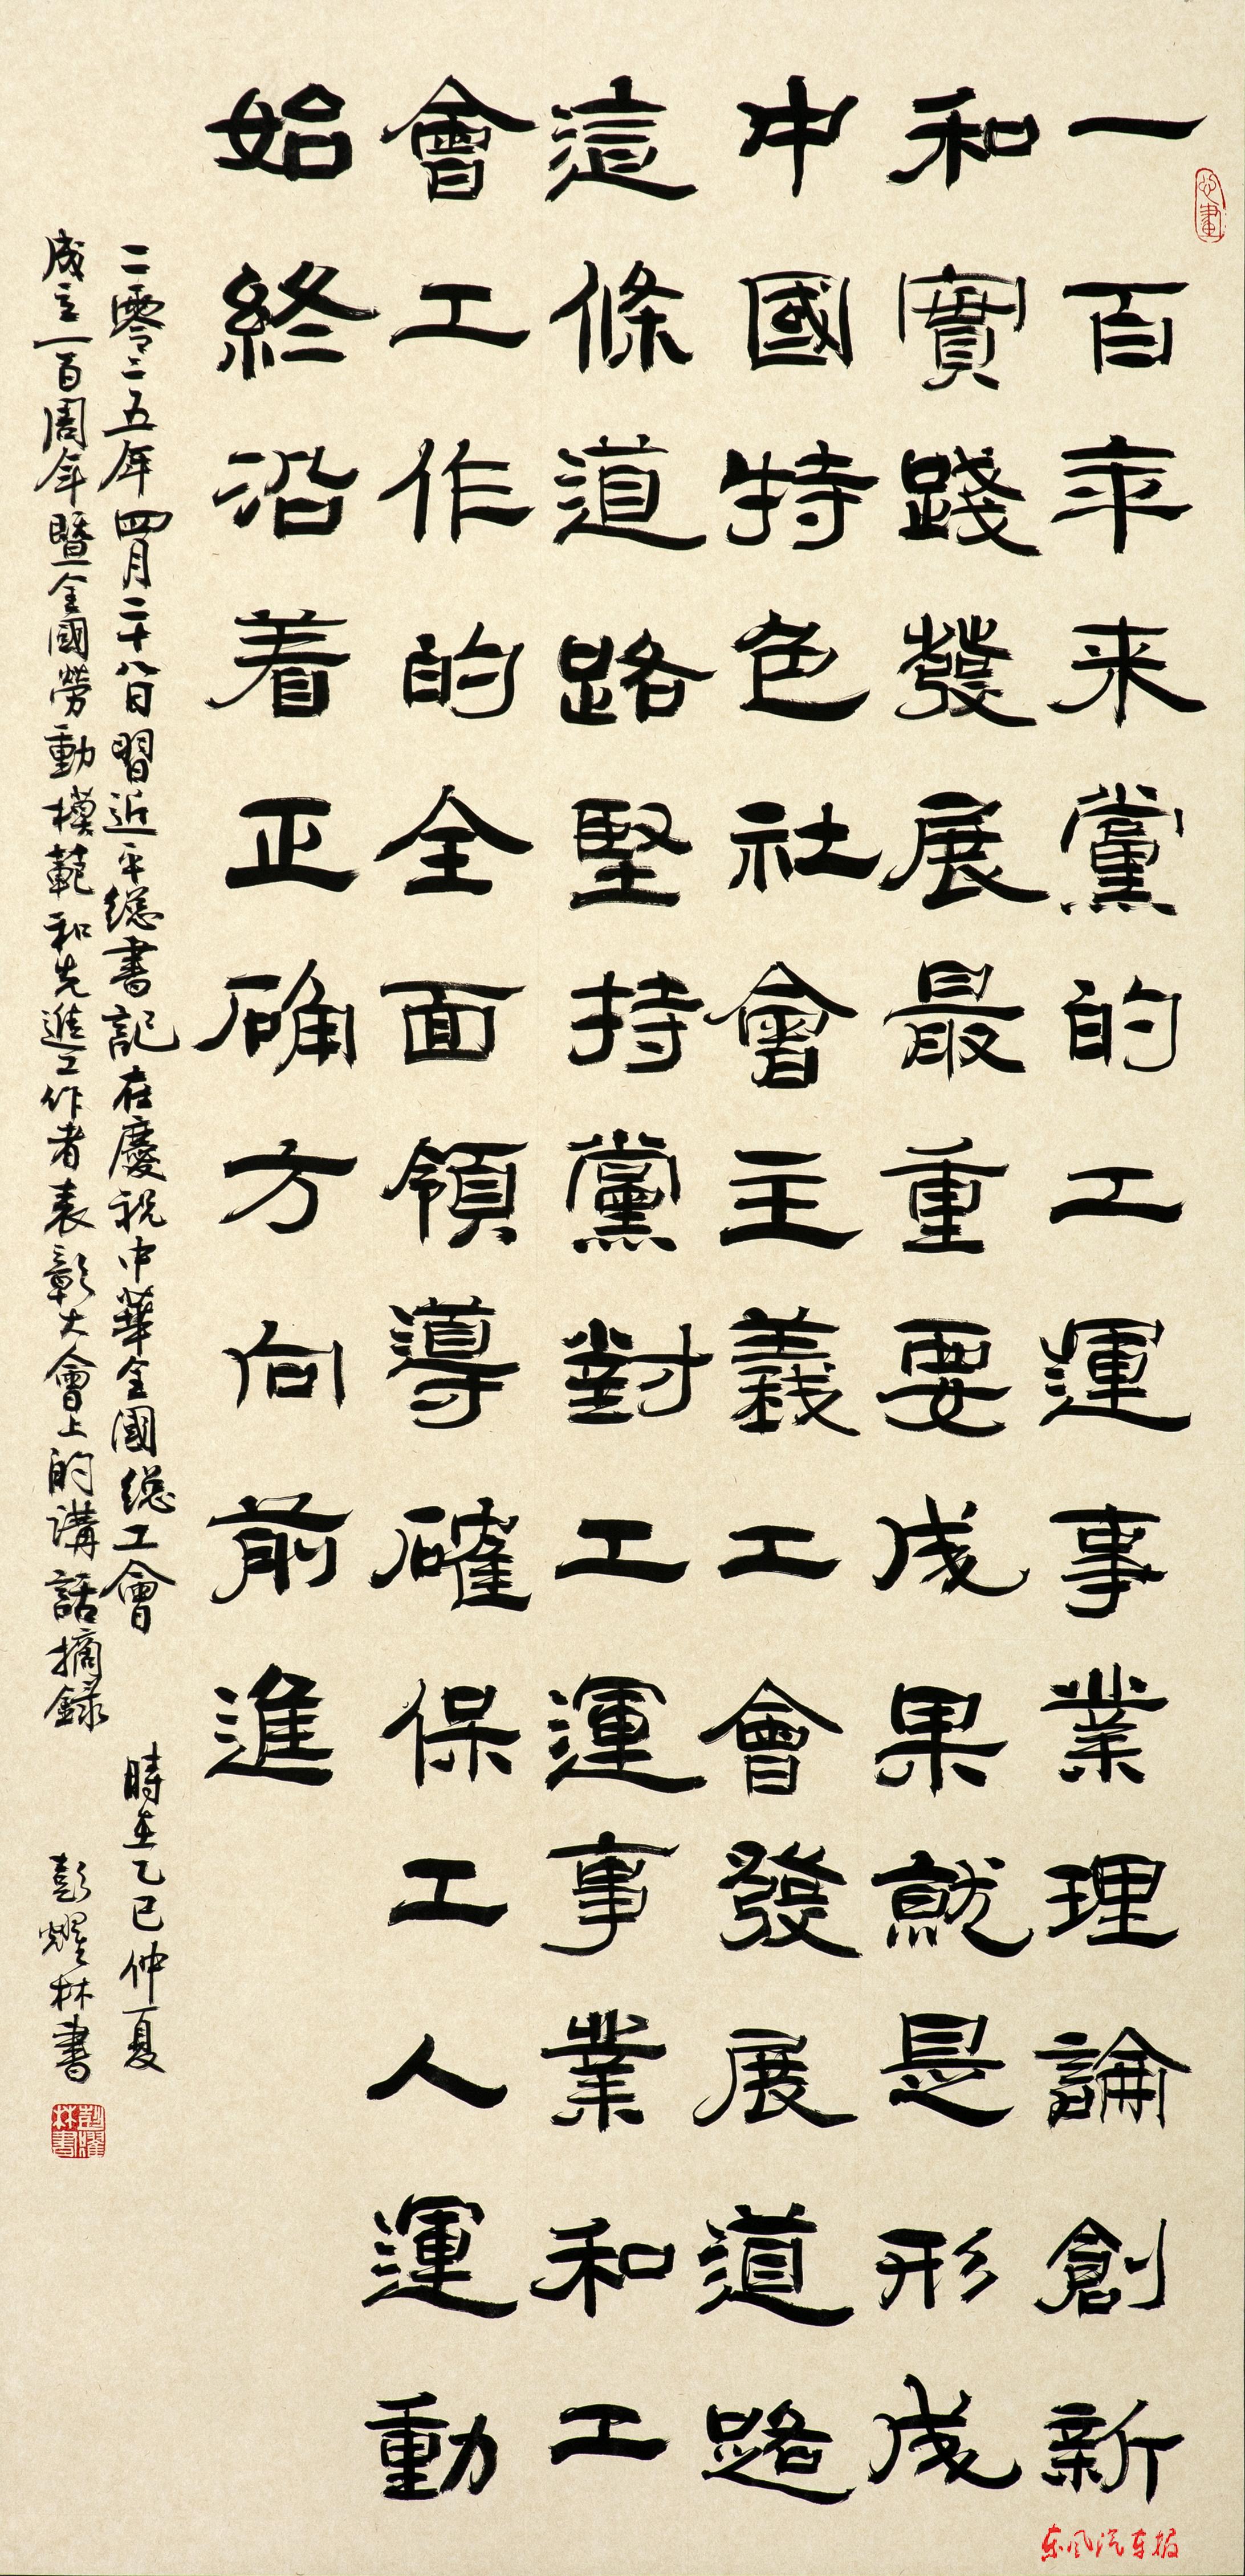 一百年来黨的工運事業理論創新
和實踐發展最重要成果就是形成
中國特色社會主義工會發展道路
這條道路堅持黨對工運事業和工
會工作的全面領導確保工人運動
始終沿着正确方向前進
二零二五年四月二十八日習近平總書記在慶祝中華全國總工會
成立一百周年暨全國勞動模範和先進工作者表彰大會上的講話摘録
時在乙巳仲夏
彭耀林書
彭耀林書
东风汽车报